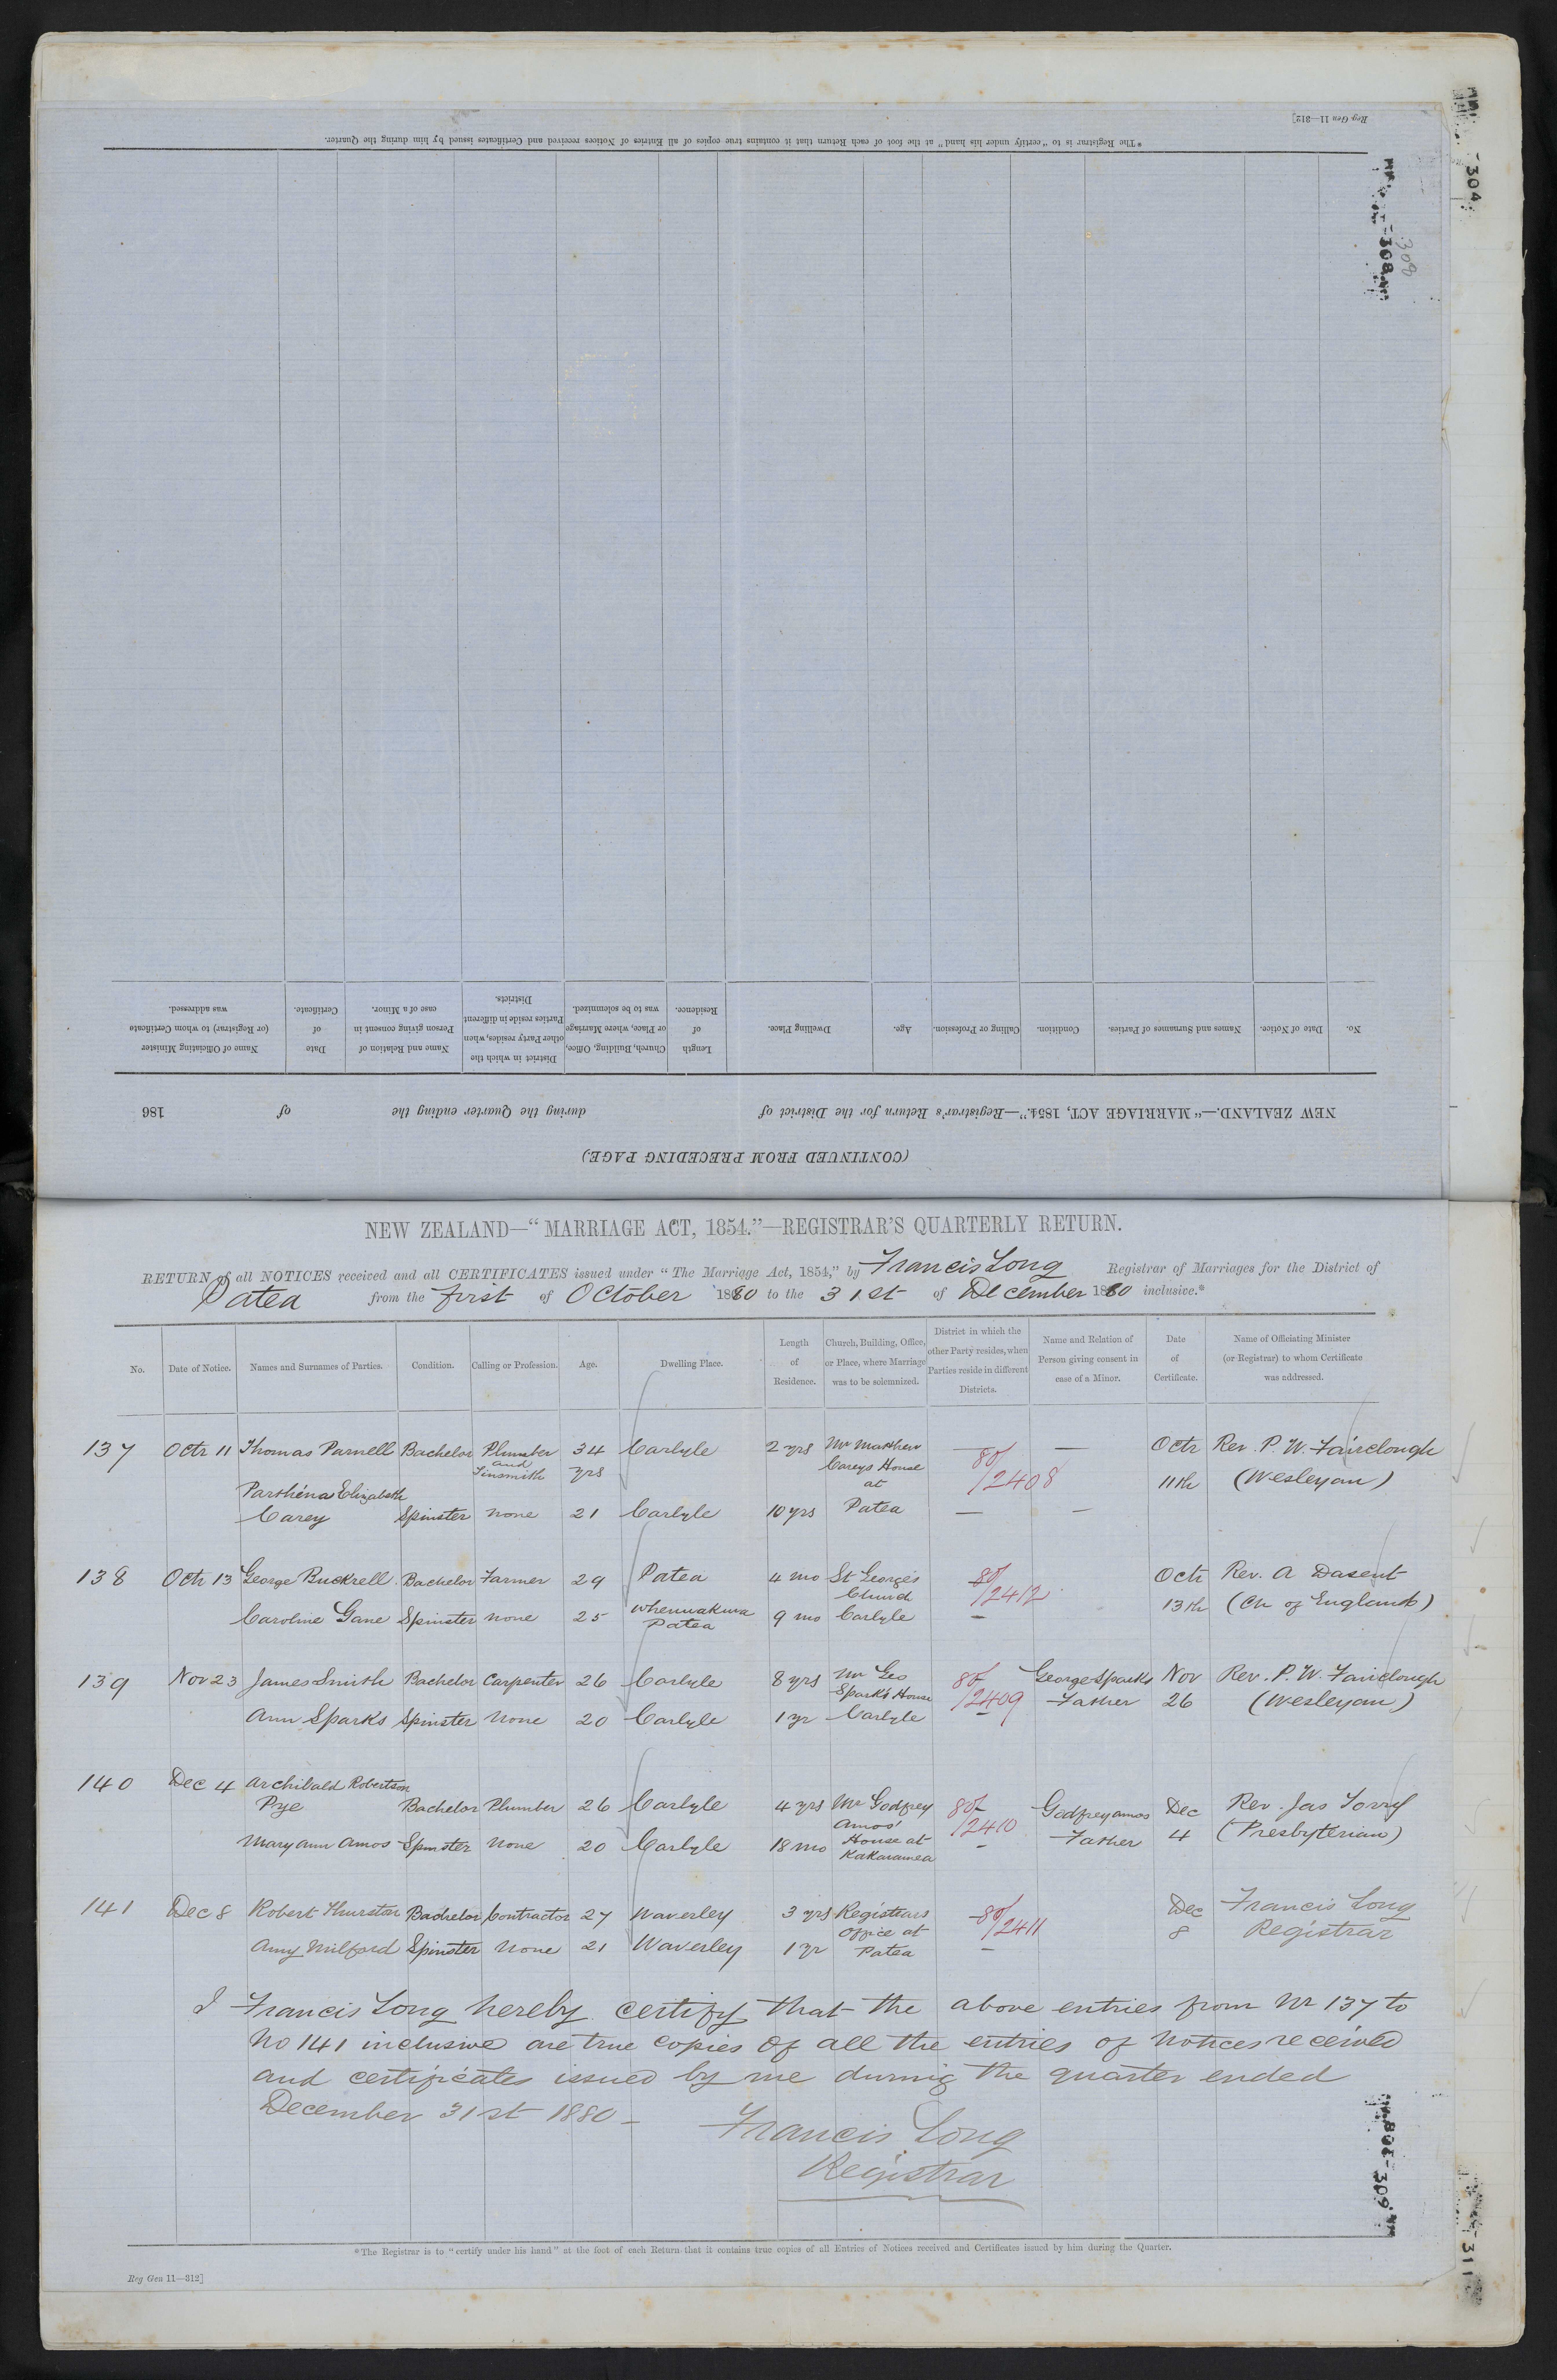 Reg Gen 11—312]
*The Registrar is to "certify under his hand" at the foot of each Return that it contains true copies of all Entries of Notices received and Certificates issued by him during the Quarter.
304
308
308
No. Date of Notice. Names and Surnames of Parties. Condition. Calling or Profession. Age. Dwelling Place. Length of Residence. Church, Building, Office, or Place, where Marriage was to be solemnized. District in which the other Party resides, when Parties reside in different Districts. Name and Relation of Person giving consent in case of a Minor. Date of Certificate. Name of Officiating Minister (or Registrar) to whom Certificate was addressed.
NEW ZEALAND.—"MARRIAGE ACT, 1854."—Registrar's Return for the District of during the Quarter ending the of 186
(CONTINUED FROM PRECEDING PAGE)
NEW ZEALAND—"MARRIAGE ACT, 1854."—REGISTRAR'S QUARTERLY RETURN.
RETURN of all NOTICES received and all CERTIFICATES issued under "The Marriage Act, 1854," by Francis Long Registrar of Marriages for the District of
Patea from the first of October 1880 to the 31st of December 1880 inclusive.*
No. Date of Notice. Names and Surnames of Parties. Condition. Calling or Profession. Age. Dwelling Place. Length of Residence. Church, Building, Office, or Place, where Marriage was to be solemnized. District in which the other Party resides, when Parties reside in different Districts. Name and Relation of Person giving consent in case of a Minor. Date of Certificate. Name of Officiating Minister (or Registrar) to whom Certificate was addressed.
137 Octr 11 Thomas Parnell Bachelor Plumber and Tinsmith 34 yrs Carlyle 2 yrs Mr Mathew Careys House at — 80/2408 — Octr 11th Rev. P. W. Fairclough (Wesleyan)
Parthena Elizabeth Carey Spinster none 21 Carlyle 10 yrs Patea — —
138 Octr 13 George Buckrell Bachelor Farmer 29 Patea 4 mo St George's Church 80/2412 Octr 13th Rev. A Dasent (Ch of England)
Caroline Gane Spinster none 25 Whenuakura Patea 9 mo Carlyle —
139 Nov 23 James Smith Bachelor Carpenter 26 Carlyle 8 yrs Mr Geo Spark's House 80/2409 George Sparks Father Nov 26 Rev. P. W. Fairclough (Wesleyan)
Ann Sparks Spinster None 20 Carlyle 1 yr Carlyle —
140 Dec 4 Archibald Robertson Pye Bachelor Plumber 26 Carlyle 4 yrs Mr Godfrey Amos' 80/2410 Godfrey Amos Father Dec 4 Rev. Jas Torry (Presbyterian)
Mary Ann Amos Spinster None 20 Carlyle 18 mo House at Kakaramea —
141 Dec 8 Robert Thurston Bachelor Contractor 27 Waverley 3 yrs Registrars 80/2411 Dec 8 Francis Long Registrar
Amy Milford Spinster None 21 Waverley 1 yr Office at Patea —
I Francis Long hereby certify that the above entries from No 137 to
No 141 inclusive are true copies of all the entries of notices received
and certificates issued by me during the quarter ended
December 31st 1880 —
Francis Long
Registrar
308-309
311
*The Registrar is to "certify under his hand" at the foot of each Return that it contains true copies of all Entries of Notices received and Certificates issued by him during the Quarter.
Reg Gen 11—312]